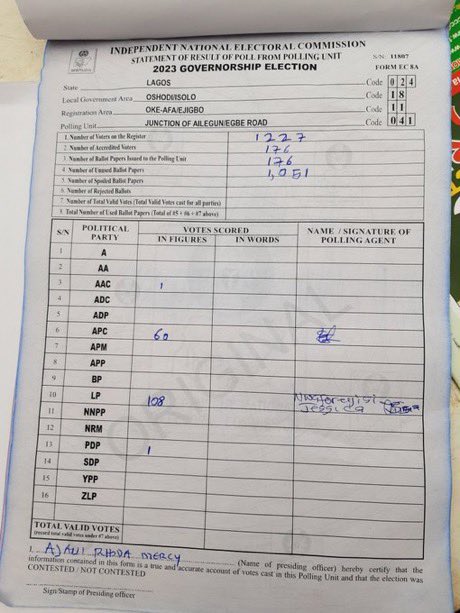 INDEPENDENT NATIONAL ELECTORAL COMMISSION
STATEMENT OF RESULT OF POLL FROM POLLING UNIT
S/N: 11807
2023 GOVERNORSHIP ELECTION
FORM EC 8A
State LAGOS Code 0 2 4
Local Government Area OSHODI/ISOLO Code 1 8
Registration Area OKE-AFA/EJIGBO Code 1 1
Polling Unit JUNCTION OF AILEGUN/EGBE ROAD Code 0 4 1
1. Number of Voters on the Register 1227
2. Number of Accredited Voters 176
3. Number of Ballot Papers Issued to the Polling Unit 176
4. Number of Unused Ballot Papers 1,051
5. Number of Spoiled Ballot Papers
6. Number of Rejected Ballots
7. Number of Total Valid Votes (Total Valid Votes cast for all parties)
8. Total Number of Used Ballot Papers (Total of #5 + #6 + #7 above)
S/N POLITICAL PARTY VOTES SCORED NAME / SIGNATURE OF POLLING AGENT
IN FIGURES IN WORDS
1 A
2 AA
3 AAC 1
4 ADC
5 ADP
6 APC 60
7 APM
8 APP
9 BP
10 LP 108
Jessica
11 NNPP
12 NRM
13 PDP 1
14 SDP
15 YPP
16 ZLP
ORIGINAL
TOTAL VALID VOTES
(record total valid votes under #7 above)
I, AJANI RHODA MERCY (Name of presiding officer) hereby certify that the
information contained in this form is a true and accurate account of votes cast in this Polling Unit and that the election was
CONTESTED / NOT CONTESTED
Sign/Stamp of Presiding officer